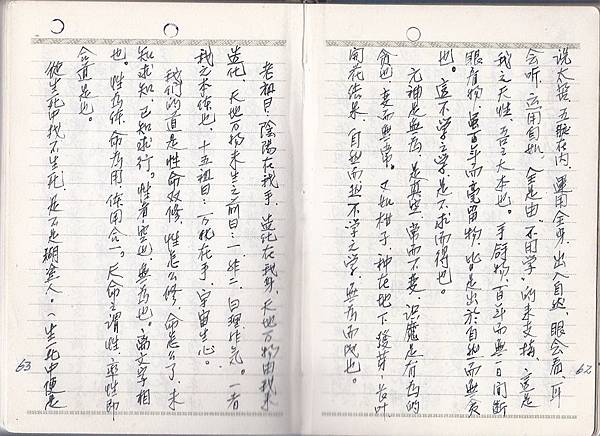 说大臟五脏在内、運用全身、出入自然、眼会看、耳
会听、运用自然、全是由、不用学的来支持、這是
我之天性、吾之大本也。手能物、百年而無一日间断
眼看物、虽千年而毫留物、皆是出於自然而無为
也。這不学之学、是不求而得也。
元神是無為、是真空、常而不变、识魔是有為的
貪也、变而無常。又如柑子、种在地下發芽、長叶
開花结果、自然而然不学之学、無為而成也。
老祖曰、陰陽在我手、造化在我身、天地万物由我来
造化、天地万物未生之前曰、一、炸二、曰理炸气。一者
我之本体也、十五祖曰、万化在手、宇宙生心。
我们的道是性命双修、性怎么修、命怎么了、未
知求知、已知求行。性者空也、無為也。离文字相
也。性為体、命為用、体用合一。天命之谓性、率性即
合道是也。
從生死中找不生死、是不是糊塗人。一生死中便是
63
62